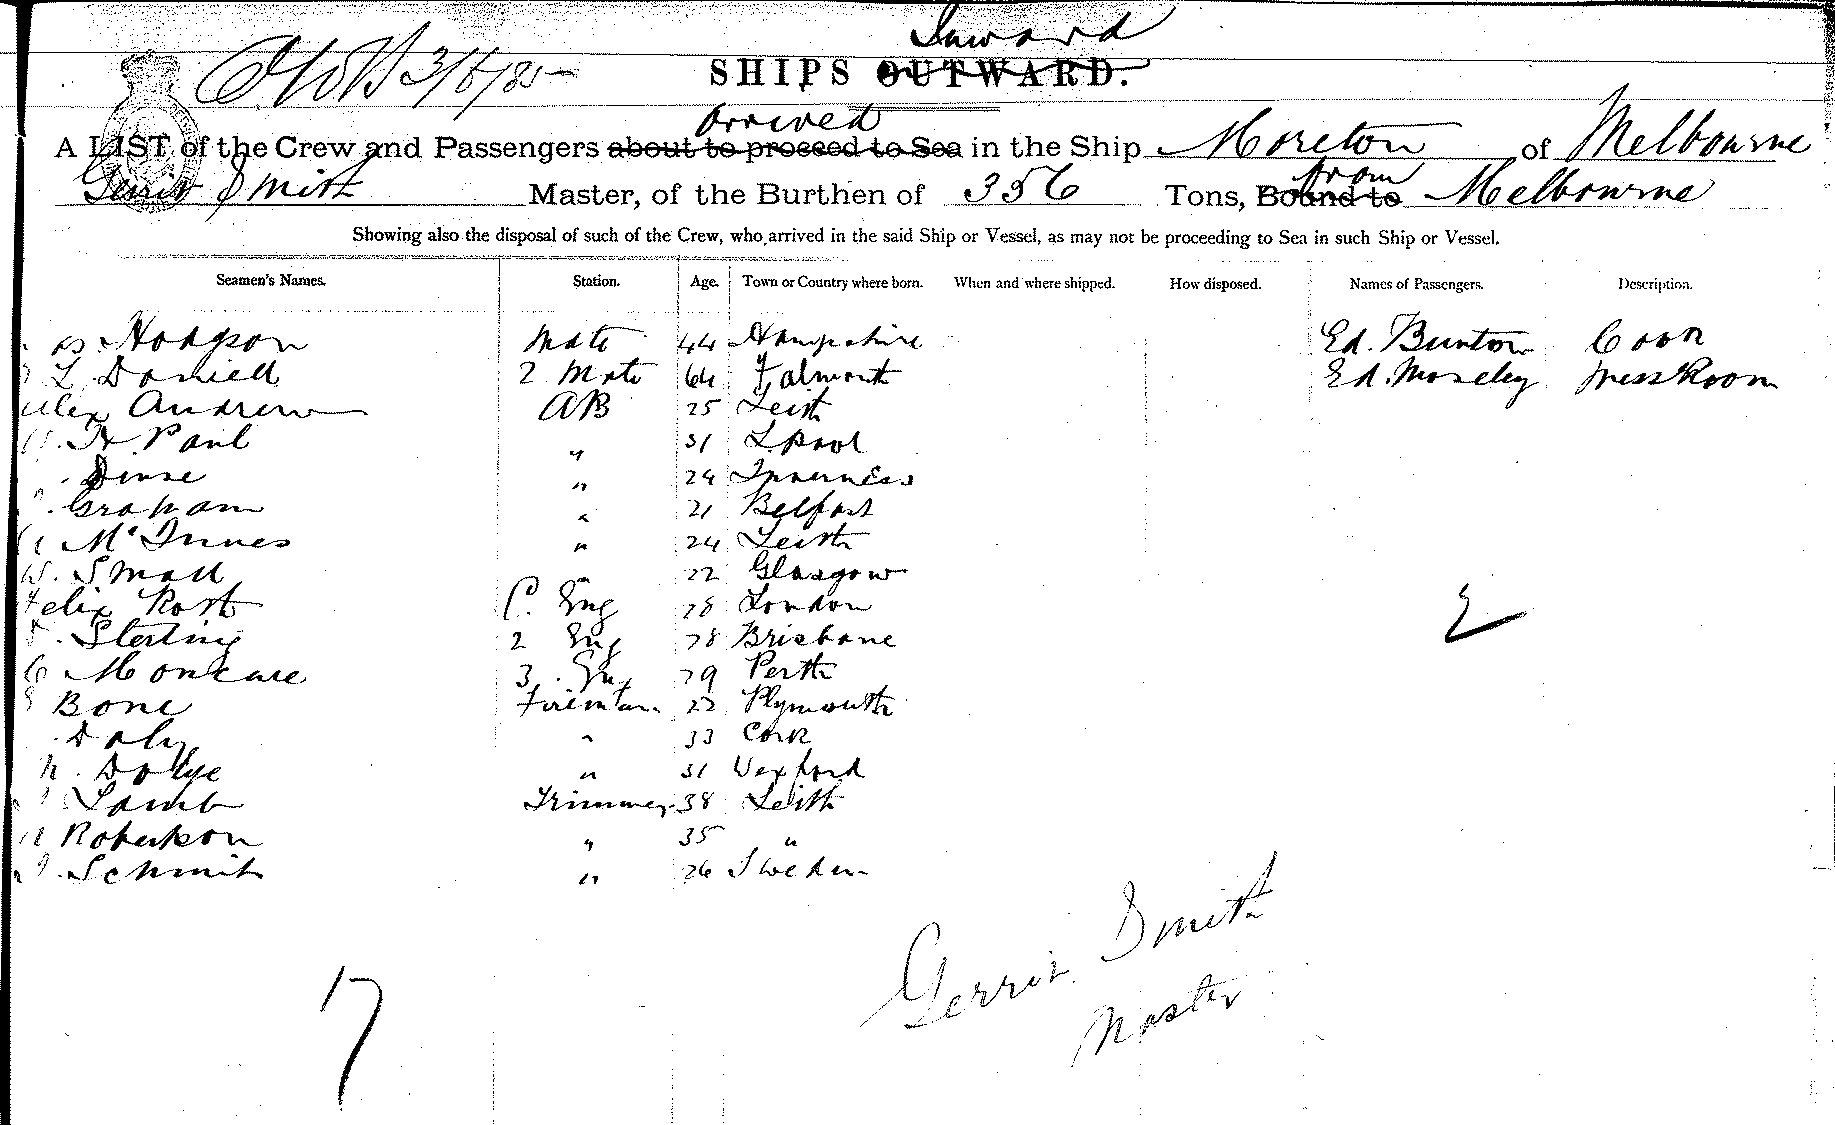 Inward
3/6/85
SHIPS OUTWARD.
arrived
A LIST of the Crew and Passengers about to proceed to Sea in the Ship Moreton of Melbourne
from
Gerrit Smith Master, of the Burthen of 356 Tons, Bound to Melbourne
Showing also the disposal of such of the Crew, who arrived in the said Ship or Vessel, as may not be proceeding to Sea in such Ship or Vessel.
Seamen's Names. Station. Age. Town or Country where born. When and where shipped. How disposed. Names of Passengers. Description.
Hodgson Mate 44 Hampshire Ed. Bunton Cook
L Daniell 2 Mate 64 Falmouth Ed. Moseley Mess Room
Alex Andrew AB 25 Leith
H Paul " 31 Lpool
" 24 Inverness
Graham " 21 Belfast
McInnes " 24 Leith
W. Small " 22 Glasgow
Felix Rost C. Eng 28 London
Sterling 2 Eng 28 Brisbane
3. Eng 29 Perth
Bone Fireman 22 Plymouth
Daly " 33 Cork
" 31 Wexford
Lamb Trimmer 38 Leith
Robertson " 35 "
Schmit " 26 Sweden
2
Gerrit Smith
Master
17